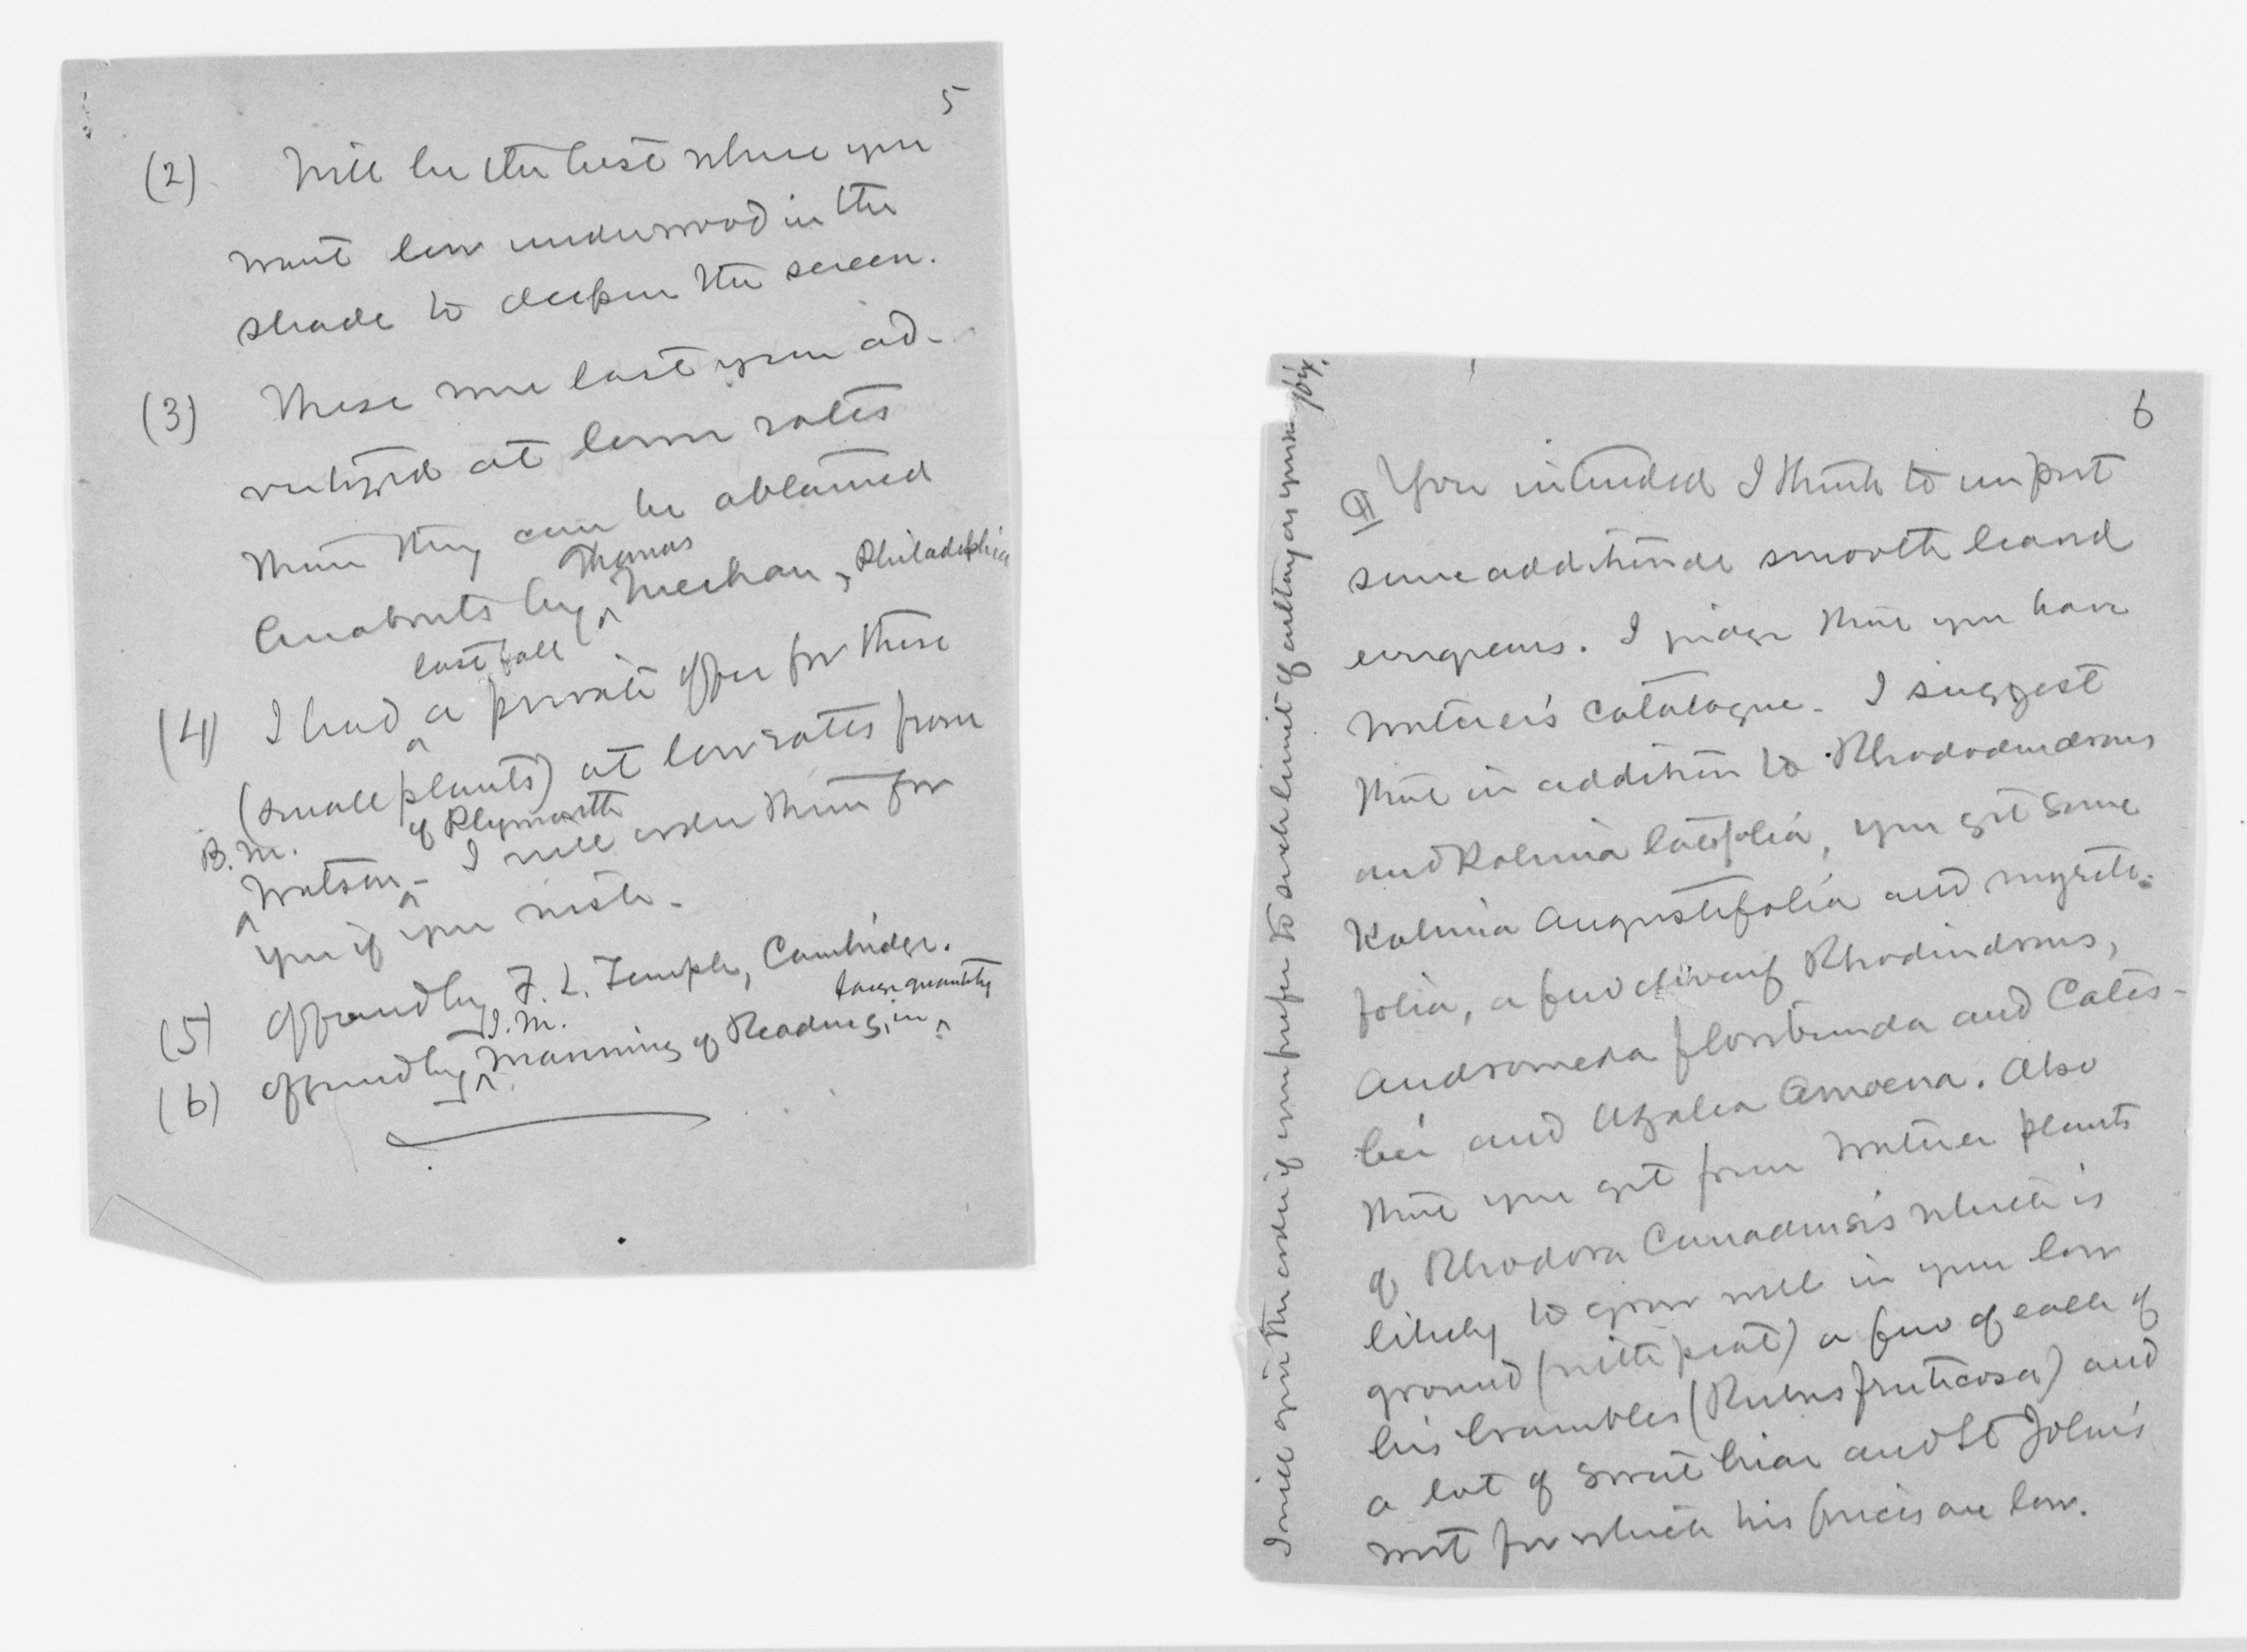 5
(2) Will be the best where you
want low underwood in the
shade to deepen the screen.
(3) These were last year ad-
vertized at lower rates
than they can be obtained
elsewhere by Thomas Meehan, Philadelphia
last fall
(4) I had a private offer for these
(small plants) at low rates from
of Plymouth
B.M. Watson - I will order them for
you if you wish.
(5) offered by F. L. Temple, Cambridge.
large quantity
(6) offered by J. M. Manning of Reading, in
6
You intended I think to import
some additional smooth leaved
evergreens. I judge that you have
Waterer's catalogue. I suggest
that in addition to Rhododendrons
and Kalmia latifolia, you get some
Kalmia angustifolia and myrti-
folia, a few dwarf Rhodendrons,
Andromeda floribunda and Cates-
bei and Azalea Amoena. Also
that you get from Waterer plants
of Rhodora Canadensis which is
likely to grow well in your low
ground (with peat) a few of each of
his brambles (Rubus fruticosa) and
a lot of sweet briar and St John's
wort for which his prices are low.
I will give the order if you prefer to such limit of outlay as you may fix.